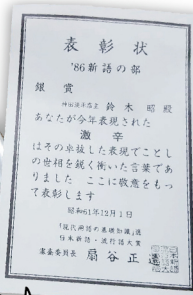 表彰状
'86新語の部
銀賞
神田淡平店主 鈴木 昭殿
あなたが今年表現された
激辛
はその卓抜した表現でことし
の世相を鋭く衝いた言葉であ
りました ここに敬意をもっ
て表彰します
昭和61年12月1日
「現代用語の基礎知識」選
日本新語・流行語大賞
審査委員長 扇谷正造